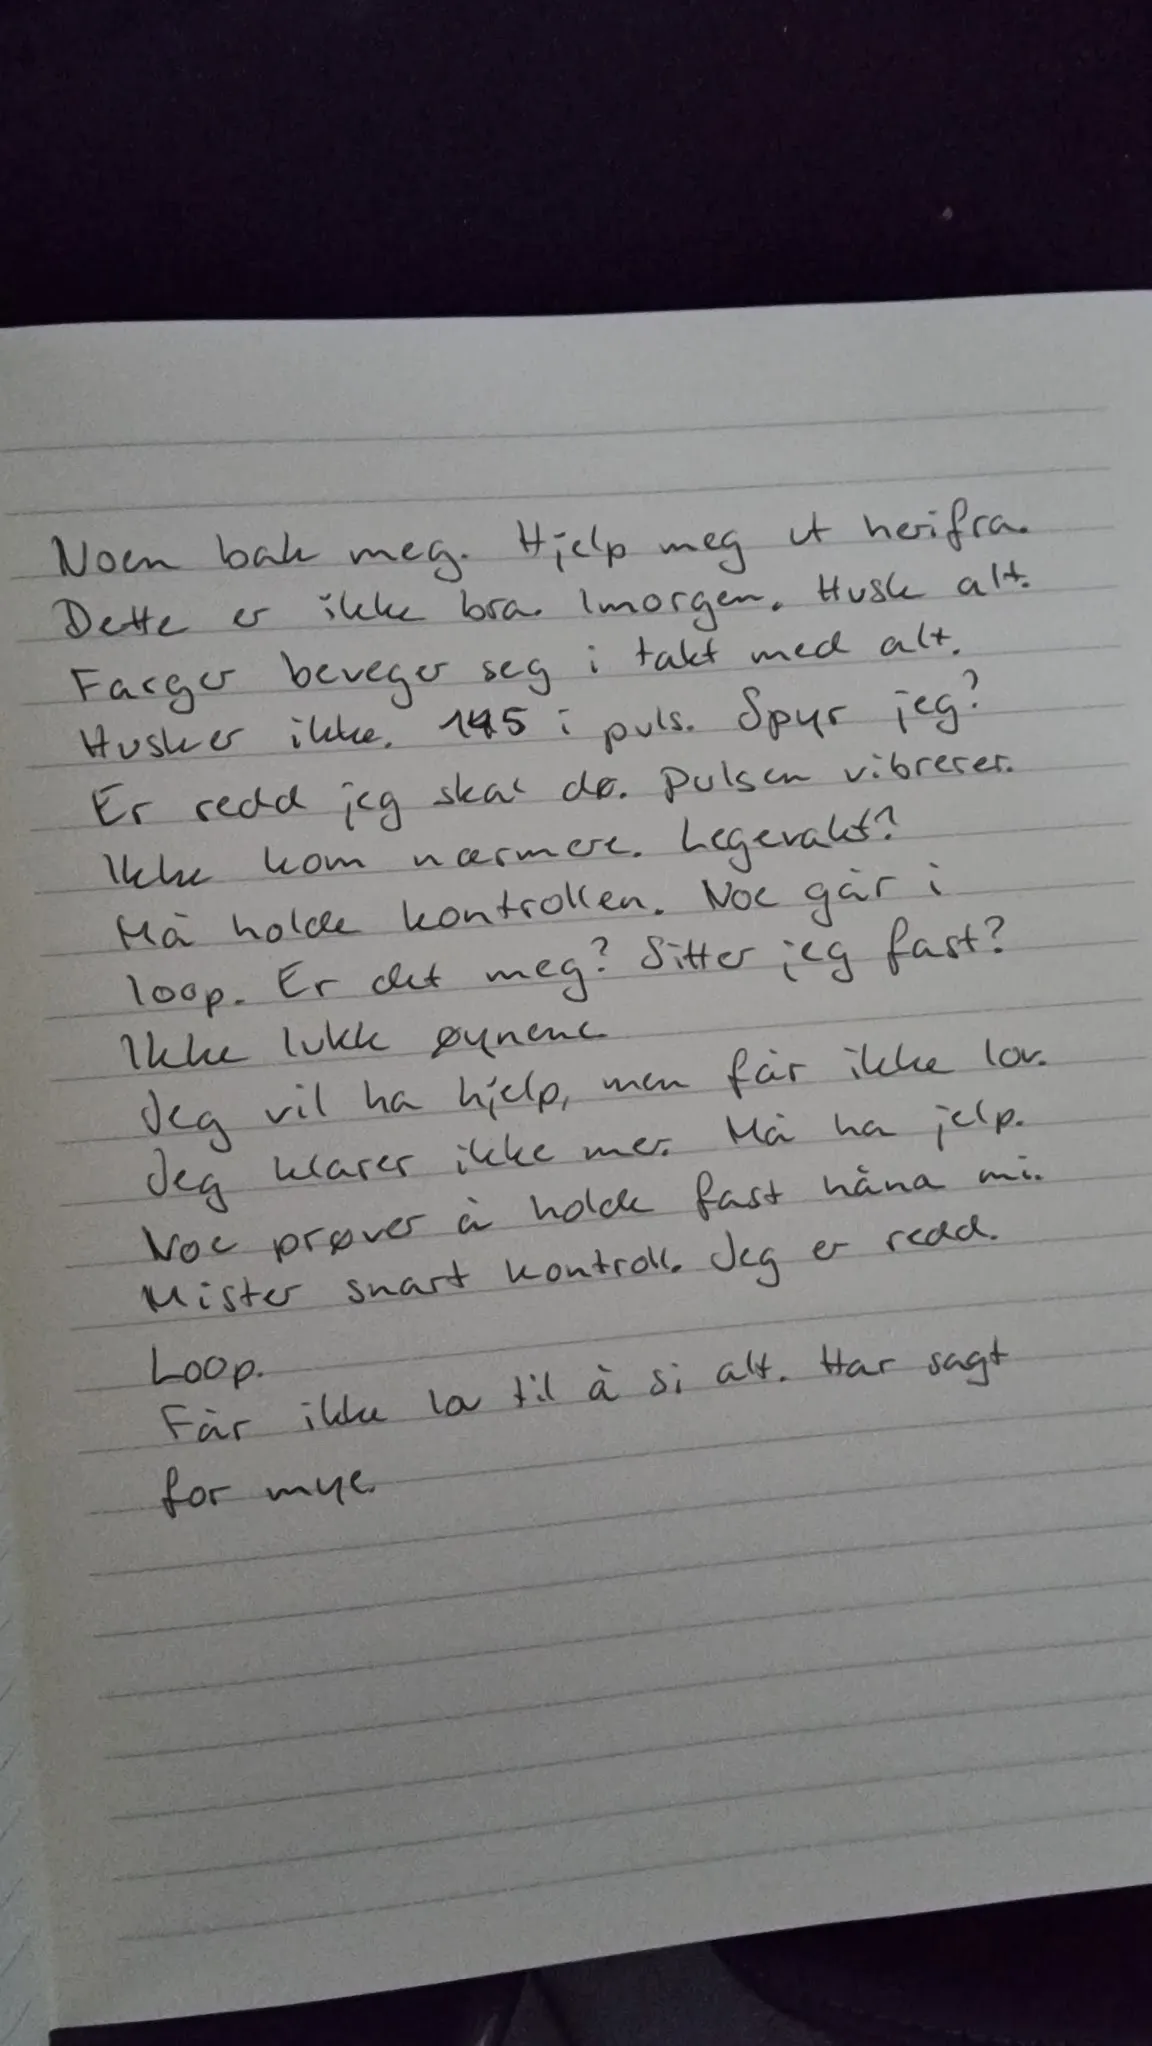 Noen bak meg. Hjelp meg ut herifra.
Dette er ikke bra. Imorgen. Husk alt.
Farger beveger seg i takt med alt.
Husker ikke. 145 i puls. Spyr jeg?
Er redd jeg skal dø. Pulsen vibrerer.
Ikke kom nærmere. Legevakt?
Må holde kontrollen. Noe går i
loop. Er det meg? Sitter jeg fast?
Ikke lukk øynene
Jeg vil ha hjelp, men får ikke lov.
Jeg klarer ikke mer. Må ha jelp.
Noe prøver å holde fast håna mi.
Mister snart kontroll. Jeg er redd.
Loop.
Får ikke lov til å si alt. Har sagt
for mye.